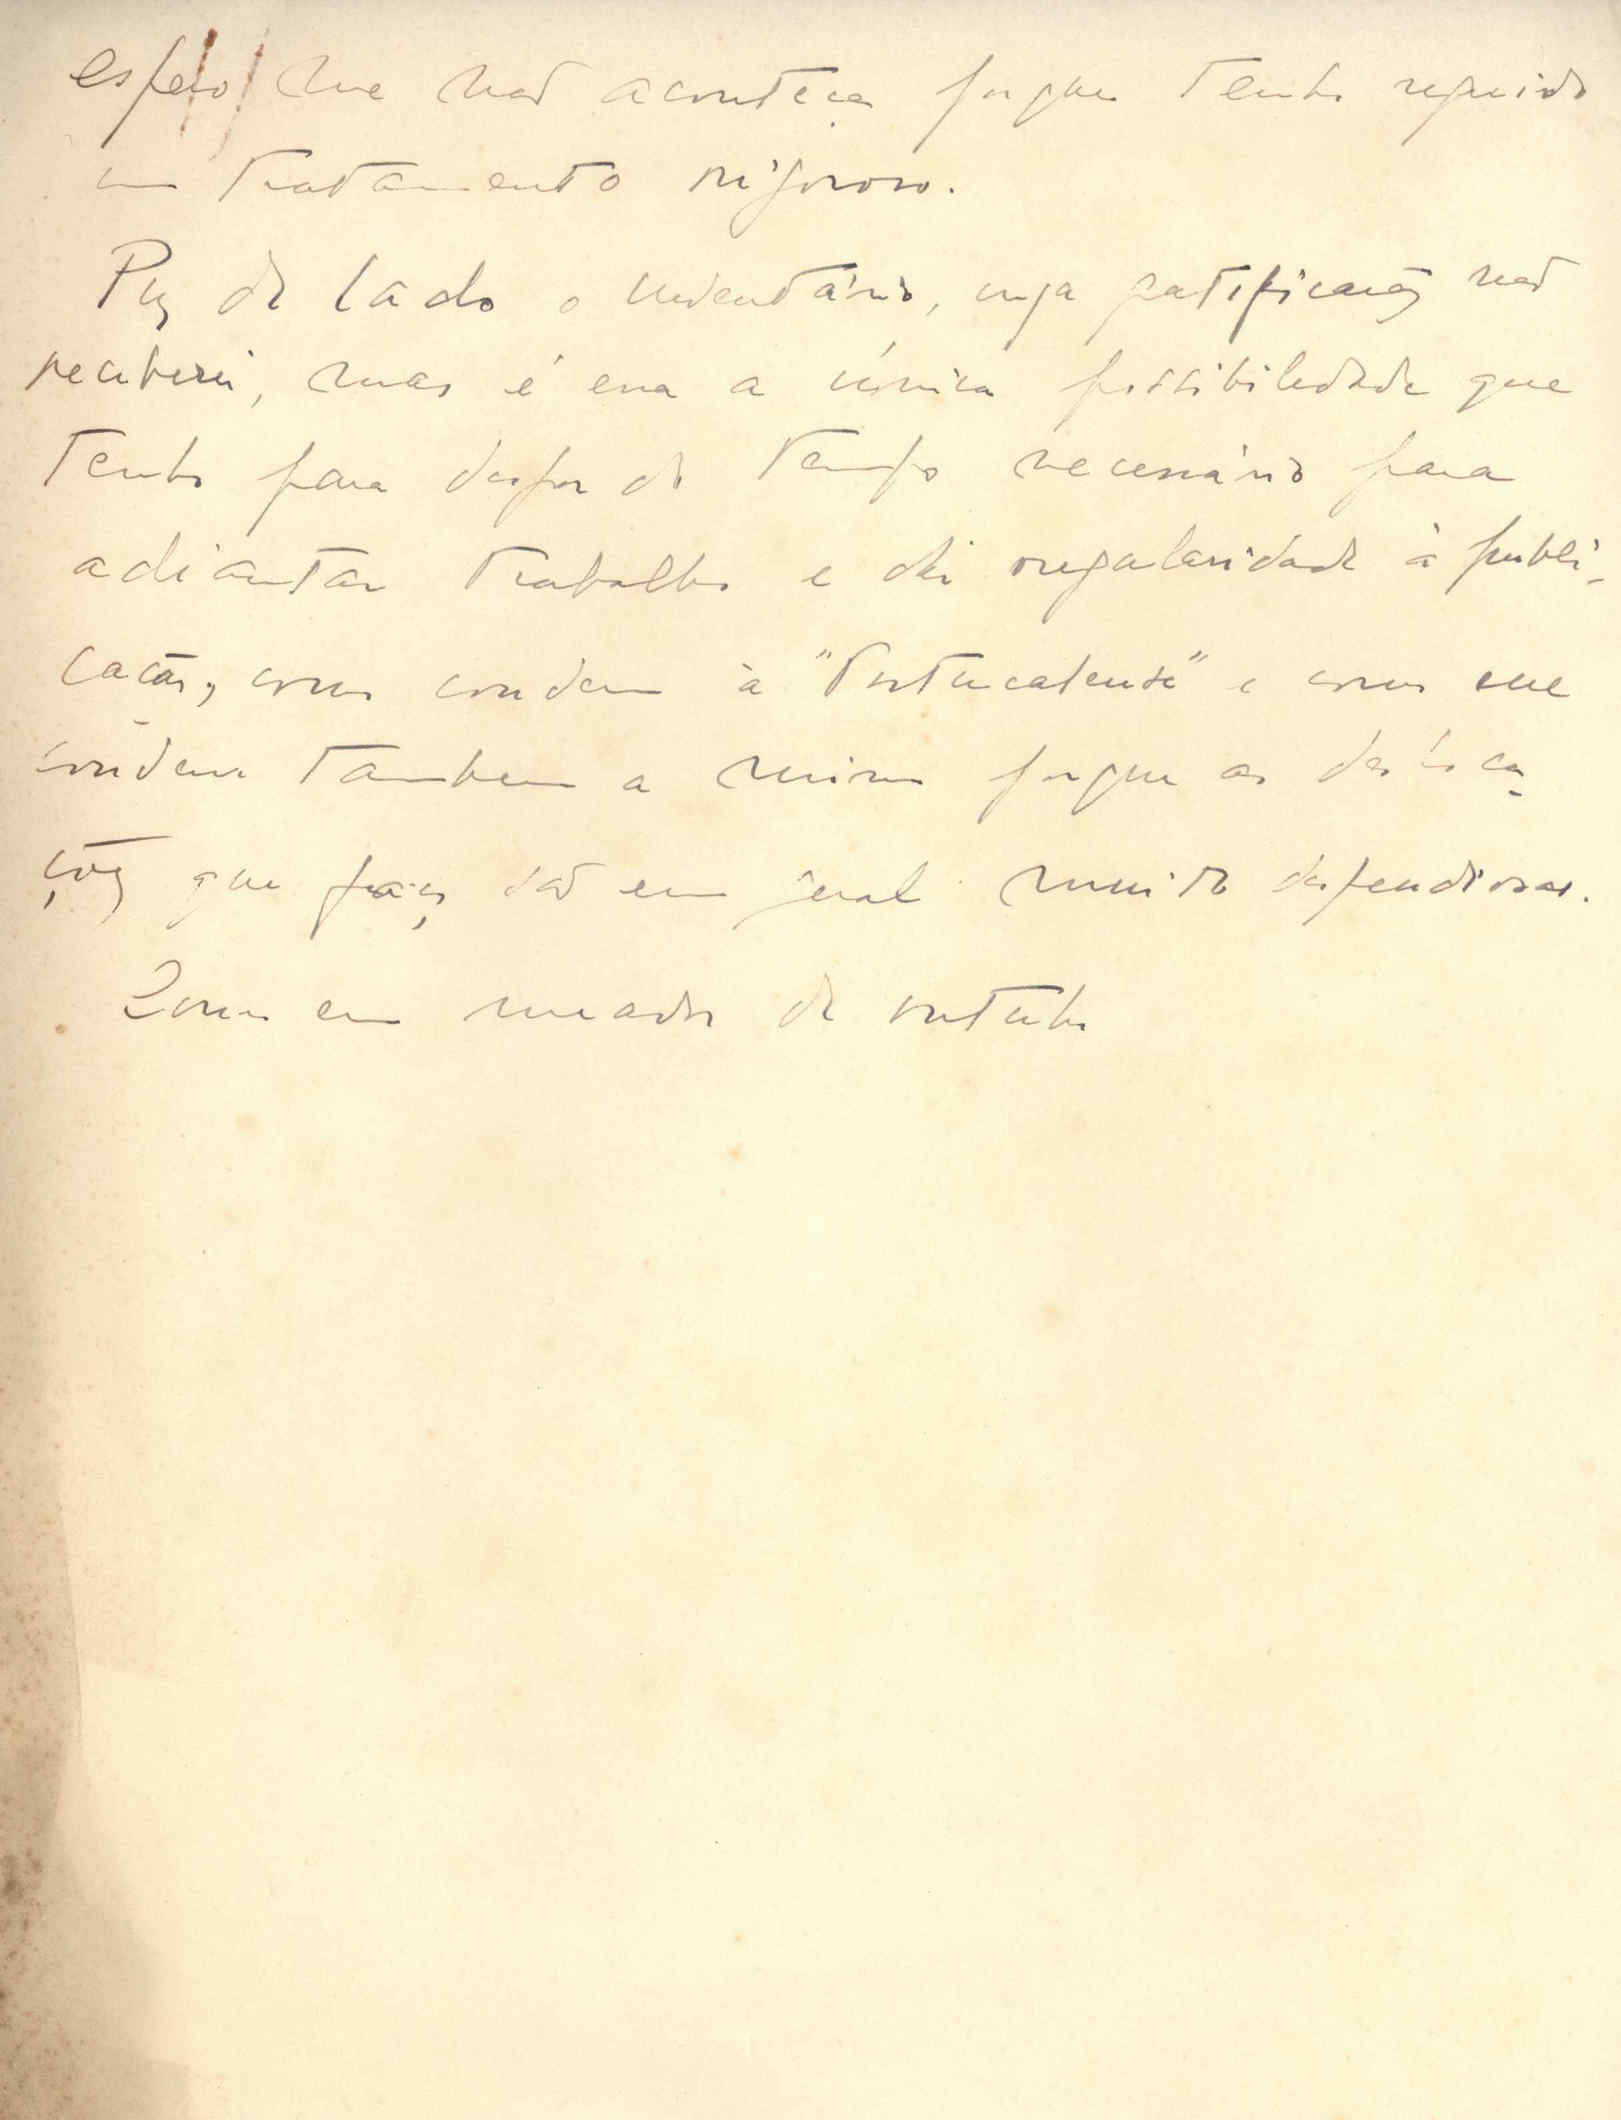 espero me não aconteça porque tenho seguido
um tratamento rigoroso.
Puz de lado o inventário, cuja gratificação não
receberei, mas é essa a única possibilidade que
tenho para dispor do tempo necessário para
adiantar trabalho e dar regularidade à publi-
cação, como convem à "Portucalense" e como me
convem tambem a mim porque as desloca-
ções que faço são em geral muito dispendiosas.
em meados de outubro